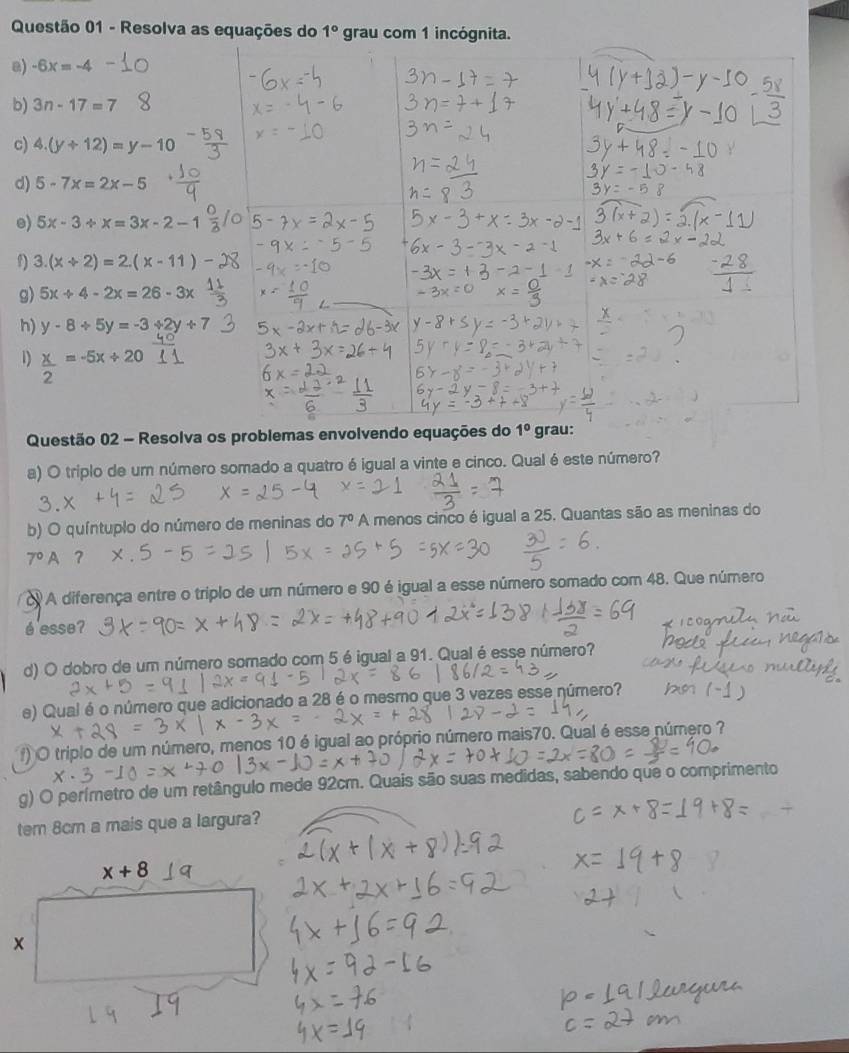 Questão 01 - Resolva as equações do 1º grau com 1 incógnita.
a) -6x = -4 -10
b) 3n - 17 = 7 8
c) 4.(y + 12) = y - 10 -58/3
d) 5 - 7x = 2x - 5 +10/9
e) 5x - 3 + x = 3x - 2 - 1 0/3 /0
f) 3.(x + 2) = 2.(x - 11) -28
g) 5x + 4 - 2x = 26 - 3x 11/3
h) y - 8 + 5y = -3 + 2y + 7 3
i) x/2 = -5x + 20 40/11
-6x = -4
x = -4-6
x = -10
3n - 17 = 7
3n = 7+17
3n = 24
n = 24
n = 8 3
4(y+12)-y-10 -58/3
4y+48=y-10
3y+48=-10
3y=-10-48
3y=-58
5-7x=2x-5
-9x=-5-5
-9x=-10
x=10/9
5x-3+x=3x-2-1
+6x-3-3x-2-1
-3x=+3-2-1
-3x=0 x=0/3
3.(x+2)=2.(x-11)
3x+6=2x-22
-x=-22-6 -28
=x=-28
5x-2x+4=26-3x
3x+3x=26+4
6x=22
x=22/6 :2 11/3
y-8+5y=-3+2y+7
5y+y=8=-3+2y+7
6y-8=-3+2y+7
6y-2y-8=-3+7
4y=-3+7+8 y=12/4
?
Questão 02 - Resolva os problemas envolvendo equações do 1º grau:
a) O triplo de um número somado a quatro é igual a vinte e cinco. Qual é este número?
3.x +4=25 x=25-4 x=21 21/3=7
b) O quíntuplo do número de meninas do 7º A menos cinco é igual a 25. Quantas são as meninas do
7º A ? x.5-5=25 | 5x=25+5=5x=30 30/5=6.
c) A diferença entre o triplo de um número e 90 é igual a esse número somado com 48. Que número
é esse? 3x-90=x+48=2x=+48+90 1 2x=138 | 138/2=69
x icognita não
pode ficar negativo
caso multiply
por (-1)
d) O dobro de um número somado com 5 é igual a 91. Qual é esse número?
2x+5=91 | 2x=91-5 | 2x=86 | 86/2=43
e) Qual é o número que adicionado a 28 é o mesmo que 3 vezes esse número?
x+28=3x | x-3x=-2x=+28 | 28-2=14
f) O triplo de um número, menos 10 é igual ao próprio número mais70. Qual é esse número ?
x.3-10=x+70 | 3x-10=x+70 / 2x=70+10=2x=80=80/2=40
g) O perímetro de um retângulo mede 92cm. Quais são suas medidas, sabendo que o comprimento
tem 8cm a mais que a largura?
x + 8 19
x
19 19
2(x+(x+8))=92
2x+2x+16=92
4x+16=92
4x=92-16
4x=76
4x=19
c=x+8=19+8=
x=19+8
27
p=19/largura
c=27 cm